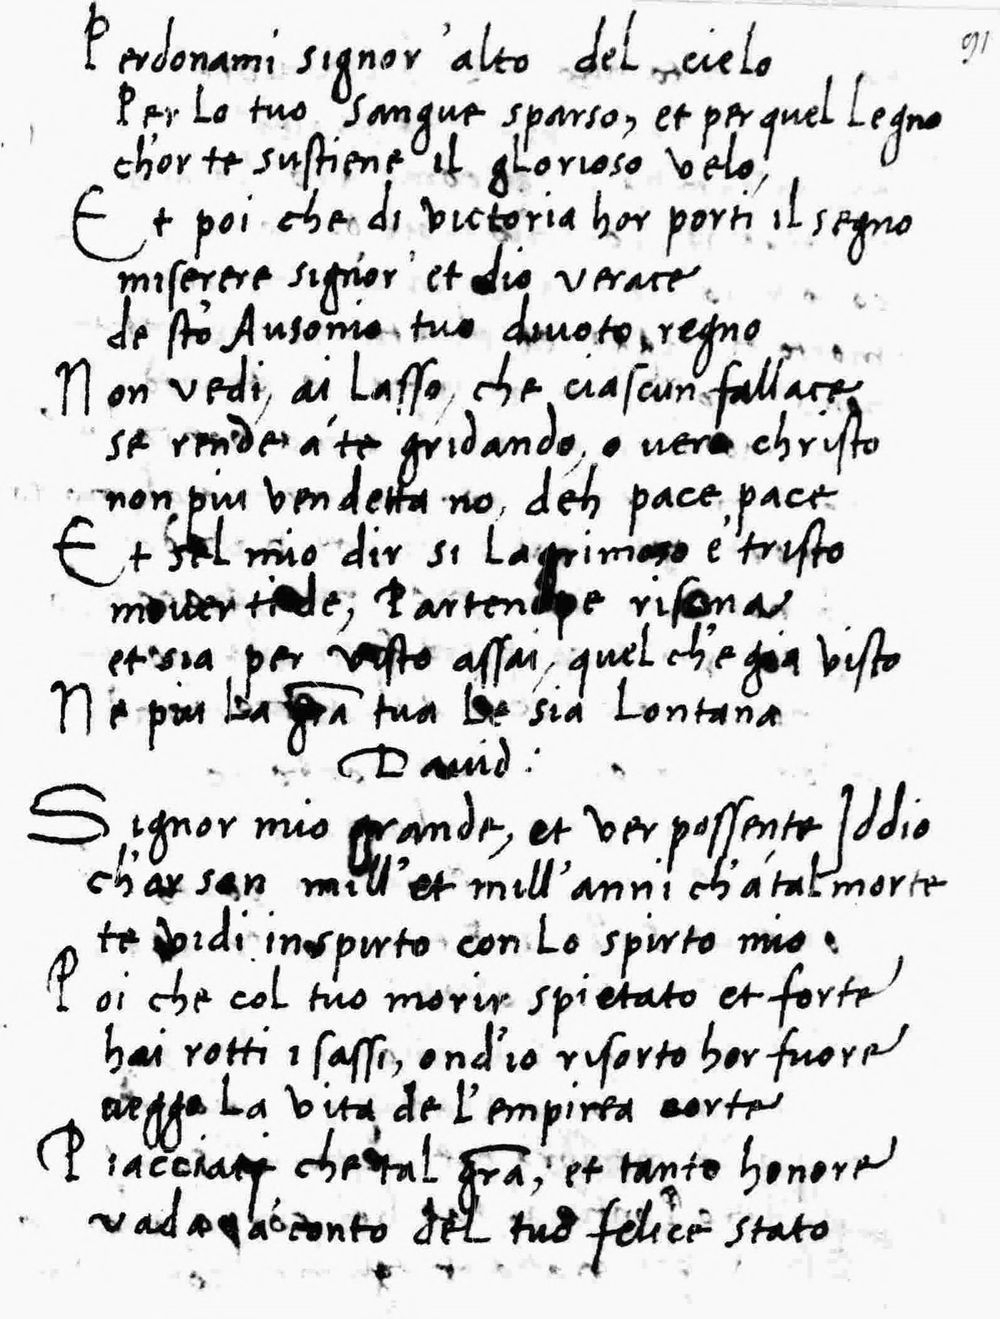 91
Perdonami signor' alto del cielo
Per lo tuo sangue sparso, et per quel legno
ch'or te sustiene il glorioso velo,
Et poi che di victoria hor porti il segno
miserere signor' et dio verace
de sto Ausonio tuo divoto regno
Non vedi, ai lasso, che ciascun fallace
se rende á te gridando, o vero christo
non piu vendetta no, deh pace pace
Et s'el mio dir si lagrimoso é tristo
mover ti de, Partenope risona
et sia per visto assai, quel ch'e gia visto
Ne piu la grã tua le sia lontana
David:
Signor mio grande, et ver possente Iddio
ch'or son mill' et mill' anni ch'á tal morte
te vidi in spirto con lo spirto mio.
Poi che col tuo morir spietato et forte
hai rotti i sassi, ond'io risorto hor fuore
veggo la vita de l'empirea corte
Piacciati che tal grã, et tanto honore
vada á conto del tuo felice stato